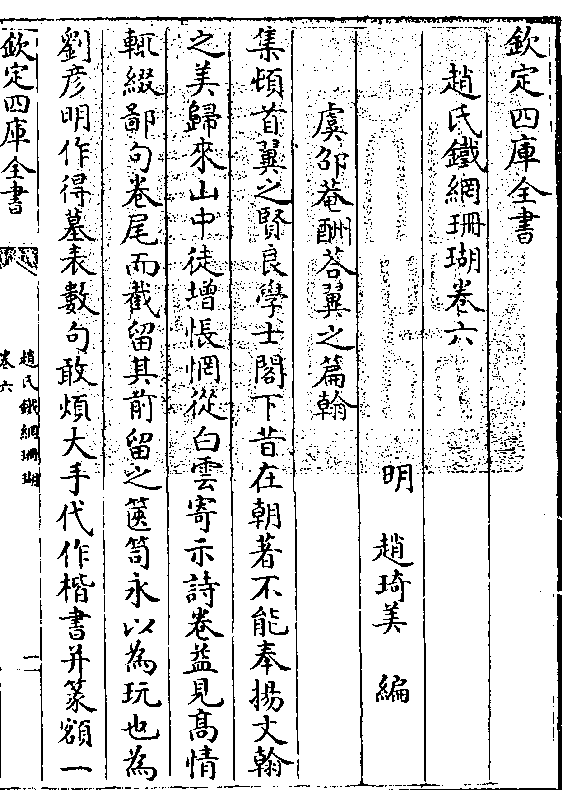 欽定四庫全書
趙氏鐵網珊瑚卷六
明 趙琦美 編
虞邵菴酬荅翼之篇翰
集頓首翼之賢良學士閣下昔在朝著不能奉揚文翰
之美歸來山中徒增悵惘從白雲寄示詩卷益見髙情
輒綴鄙句卷尾而截留其前留之篋笥永以為玩也為
劉彦明作得墓表數句敢煩大手代作楷書并篆額一
欽定四庫全書
趙氏鐵網珊瑚
卷六
一